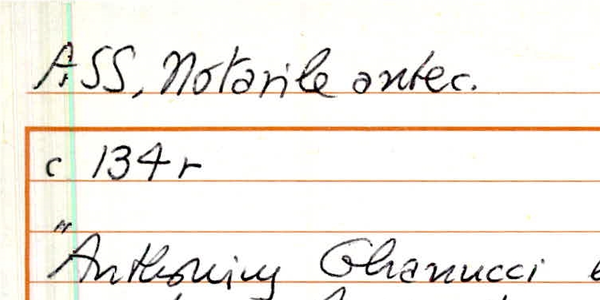 ASS, Notarile antec.
c 134r
"Anthonius Ghanucci